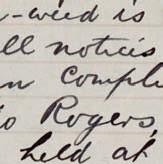 -weed is
ll notices
n compli
to Rogers,
held at